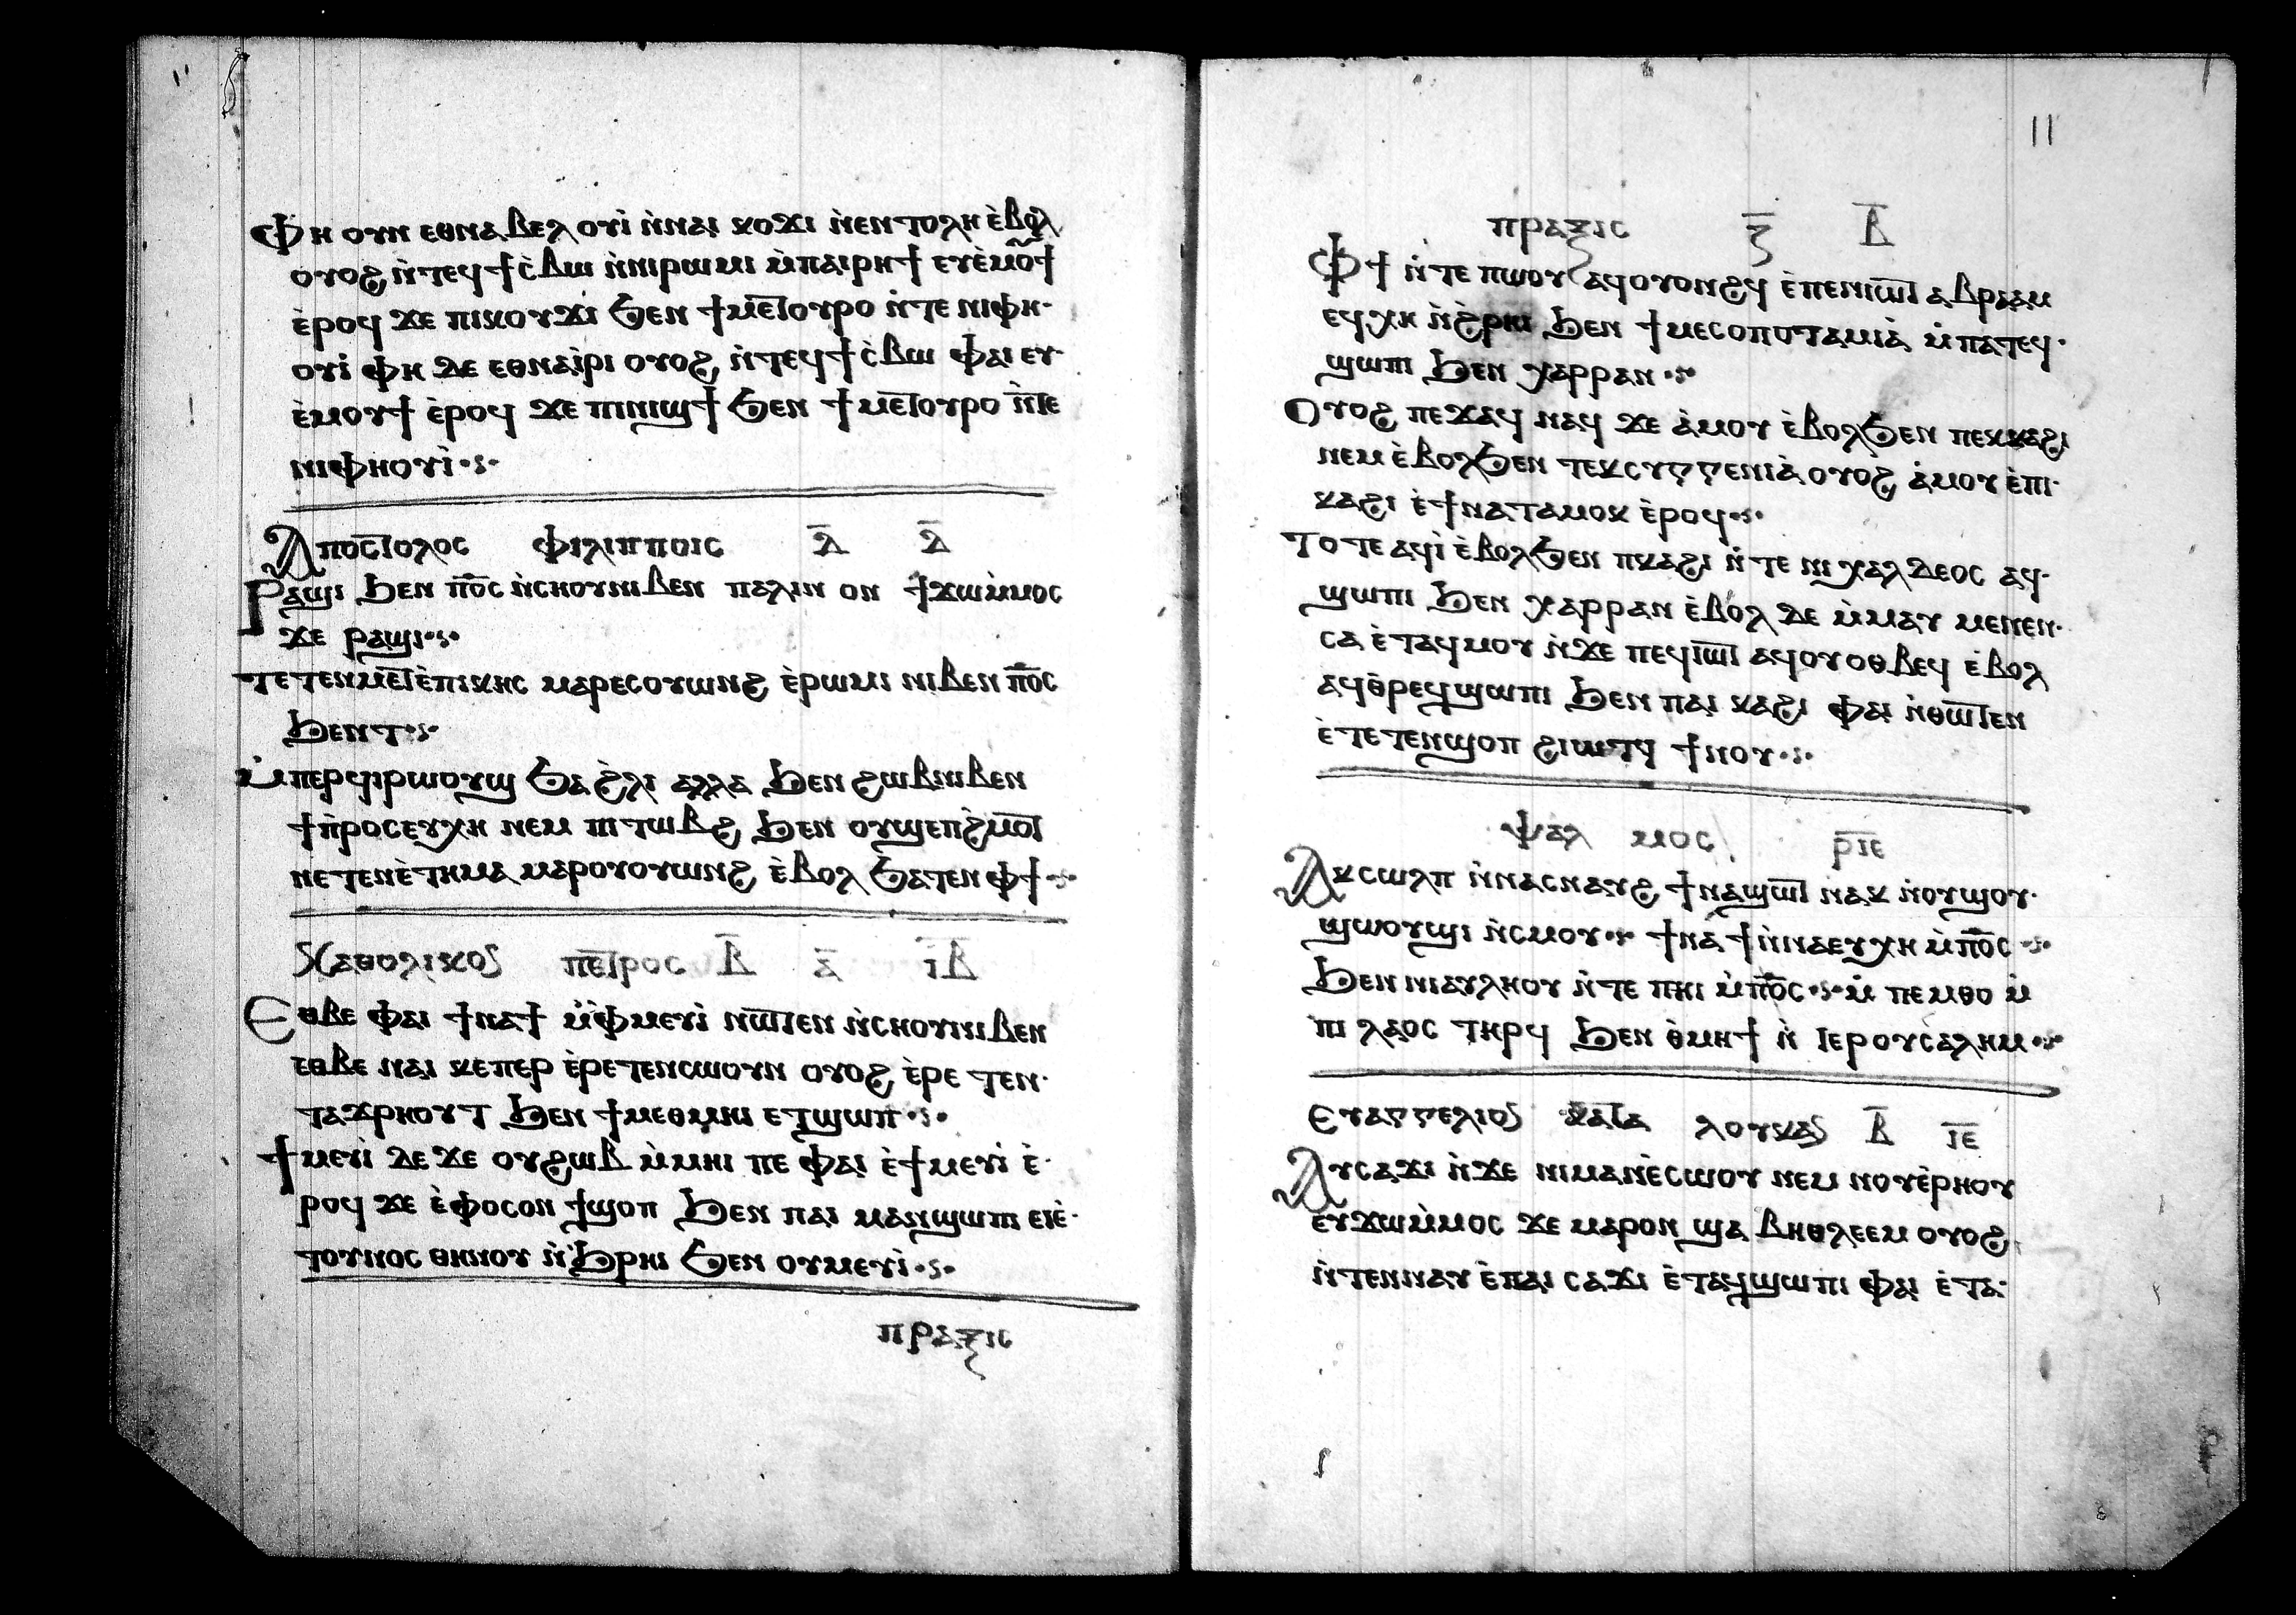 Ⲫⲏ ⲟⲩⲛ ⲉⲑⲛⲁⲃⲉⲗ ⲟⲩⲓ̀ ⲛ̀ⲛⲁⲓ ⲕⲟϫⲓ ⲛ̀ⲉⲛⲧⲟⲗⲏ ⲉ̀ⲃⲟⲗ
ⲟⲩⲟϩ ⲛ̀ⲧⲉϥϯⲥ̀ⲃⲱ ⲛ̀ⲛⲓⲣⲱⲙⲓ ⲙ̀ⲡⲁⲓⲣⲏϯ ⲉⲩⲉ̀ⲙⲟ̅ϯ
ⲉ̀ⲣⲟϥ ϫⲉ ⲡⲓⲕⲟⲩϫⲓ ϧⲉⲛ ϯⲙⲉ̅ⲧⲟⲩⲣⲟ ⲛ̀ⲧⲉ ⲛⲓⲫⲏ·
ⲟⲩⲓ̀ ⲫⲏ ⲇⲉ ⲉⲑⲛⲁⲓ̀ⲣⲓ ⲟⲩⲟϩ ⲛ̀ⲧⲉϥϯⲥ̀ⲃⲱ ⲫⲁⲓ ⲉⲩ·
ⲉ̀ⲙⲟⲩϯ ⲉ̀ⲣⲟϥ ϫⲉ ⲡⲓⲛⲓϣϯ ϧⲉⲛ ϯⲙⲉ̅ⲧⲟⲩⲣⲟ ⲛ̀ⲧⲉ
ⲛⲓⲫⲏⲟⲩⲓ̀·ⲋ·
Ⲁⲡⲟⲥ̅ⲧⲟⲗⲟⲥ ⲫⲓⲗⲓⲡⲡⲟⲓⲥ ⲇ̅ ⲇ̅
Ⲣⲁϣⲓ ϧⲉⲛ ⲡⲟ̅ⲥ ⲛ̀ⲥⲏⲟⲩⲛⲓⲃⲉⲛ ⲡⲁⲗⲓⲛ ⲟⲛ ϯϫⲱⲙ̀ⲙⲟⲥ
ϫⲉ ⲣⲁϣⲓ·ⲋ·
ⲧⲉⲧⲉⲛⲙⲉ̅ⲧⲉ̀ⲡⲓⲕⲏⲥ ⲙⲁⲣⲉⲥⲟⲩⲱⲛϩ ⲉ̀ⲣⲱⲙⲓ ⲛⲓⲃⲉⲛ ⲡⲟ̅ⲥ
ϧⲉⲛⲧ·ⲋ·
Ⲙ̀ⲡⲉⲣϥⲓⲣⲱⲟⲩϣ ϧⲁ ϩ̀ⲗⲓ ⲁⲗⲗⲁ ϧⲉⲛ ϩⲱⲃⲛⲓⲃⲉⲛ
ϯⲡ̀ⲣⲟⲥⲉⲩⲭⲏ ⲛⲉⲙ ⲡⲓ ⲧⲱⲃϩ ϧⲉⲛ ⲟⲩϣⲉⲡϩ̀ⲙⲟ̅ⲧ
ⲛⲉⲧⲉⲛⲉ̀ⲧⲏⲙⲁ ⲙⲁⲣⲟⲩⲟⲩⲱⲛϩ ⲉ̀ⲃⲟⲗ ϧⲁⲧⲉⲛ ⲫϯ·ⲋ·
Ⲕⲁⲑⲟⲗⲓⲕⲟⲥ ⲡⲉ̅ⲧⲣⲟⲥ ⲃ̅ ⲁ̅ ⲓ̅ⲃ̅
Ⲉⲑⲃⲉ ⲫⲁⲓ ϯⲛⲁϯ ⲙ̀ⲫ̀ⲙⲉⲩⲓ̀ ⲛⲱ̅ⲧⲉⲛ ⲛ̀ⲥⲏⲟⲩⲛⲓⲃⲉⲛ
ⲉⲑⲃⲉ ⲛⲁⲓ ⲕⲉⲡⲉⲣ ⲉ̀ⲣⲉⲧⲉⲛⲥⲱⲟⲩⲛ ⲟⲩⲟϩ ⲉ̀ⲣⲉ ⲧⲉⲛ·
ⲧⲁϫⲣⲏⲟⲩⲧ ϧⲉⲛ ϯⲙⲉⲑⲙⲏⲓ ⲉⲧϣⲱⲡ·ⲋ·
Ϯⲙⲉⲩⲓ̀ ⲇⲉ ϫⲉ ⲟⲩϩⲱⲃ ⲙ̀ⲙⲏⲓ ⲡⲉ ⲫⲁⲓ ⲉ̀ϯⲙⲉⲩⲓ̀ ⲉ̀·
ⲣⲟϥ ϫⲉ ⲉ̀ⲫⲟⲥⲟⲛ ϯϣⲟⲡ ϧⲉⲛ ⲡⲁⲓ ⲙⲁⲛϣⲱⲡⲓ ⲉⲓⲉ̀·
ⲧⲟⲩⲛⲟⲥ ⲑⲏⲛⲟⲩ ⲛ̀ϧ̀ⲣⲏⲓ ϧⲉⲛ ⲟⲩⲙⲉⲩⲓ̀·ⲋ·
ⲡⲣⲁⲝⲓⲥ
11
ⲡⲣⲁⲝⲓⲥ ⲍ̅ ⲃ̅
Ⲫϯ ⲛ̀ⲧⲉ ⲡⲱⲟⲩ ⲁϥⲟⲩⲟⲛϩϥ ⲉ̀ⲡⲉⲛⲓⲱ̅ⲧ ⲁⲃⲣⲁⲁⲙ
ⲉϥⲭⲏ ⲛ̀ϩ̀ⲣⲏⲓ ϧⲉⲛ ϯⲙⲉⲥⲟⲡⲟⲧⲁⲙⲓⲁ̀ ⲙ̀ⲡⲁⲧⲉϥ·
ϣⲱⲡⲓ ϧⲉⲛ ⲭⲁⲣⲣⲁⲛ·ⲋ·
Ⲟⲩⲟϩ ⲡⲉϫⲁϥ ⲛⲁϥ ϫⲉ ⲁ̀ⲙⲟⲩ ⲉ̀ⲃⲟⲗϧⲉⲛ ⲡⲉⲕⲕⲁϩⲓ
ⲛⲉⲙ ⲉ̀ⲃⲟⲗϧⲉⲛ ⲧⲉⲕⲥⲩⲅⲅⲉⲛⲓⲁ̀ ⲟⲩⲟϩ ⲁ̀ⲙⲟⲩ ⲉ̀ⲡⲓ·
ⲕⲁϩⲓ ⲉ̀ϯⲛⲁⲧⲁⲙⲟⲕ ⲉ̀ⲣⲟϥ·ⲋ·
ⲧⲟⲧⲉ ⲁϥⲓ̀ ⲉ̀ⲃⲟⲗϧⲉⲛ ⲡⲕⲁϩⲓ ⲛ̀ⲧⲉ ⲛⲓ ⲭⲁⲗⲇⲉⲟⲥ ⲁϥ·
ϣⲱⲡⲓ ϧⲉⲛ ⲭⲁⲣⲣⲁⲛ ⲉ̀ⲃⲟⲗ ⲇⲉ ⲙ̀ⲙⲁⲩ ⲙⲉⲛⲉⲛ·
ⲥⲁ ⲉ̀ⲧⲁϥⲙⲟⲩ ⲛ̀ϫⲉ ⲡⲉϥⲓⲱ̅ⲧ ⲁϥⲟⲩⲟⲑⲃⲉϥ ⲉ̀ⲃⲟⲗ
ⲁϥⲑ̀ⲣⲉϥϣⲱⲡⲓ ϧⲉⲛ ⲡⲁⲓ ⲕⲁϩⲓ ⲫⲁⲓ ⲛ̀ⲑⲱ̅ⲧⲉⲛ
ⲉ̀ⲧⲉⲧⲉⲛϣⲟⲡ ϩⲓⲱⲧϥ ϯⲛⲟⲩ·ⲋ·
ⲯⲁⲗ ⲙⲟⲥ ⲣ̅ⲓ̅ⲉ̅
Ⲁⲕⲥⲱⲗⲡ ⲛ̀ⲛⲁⲥⲛⲁⲩϩ ϯⲛⲁϣⲱ̅ⲧ ⲛⲁⲕ ⲛ̀ⲟⲩϣⲟⲩ·
ϣⲱⲟⲩϣⲓ ⲛ̀ⲥⲙⲟⲩ·ⲋ· ϯⲛⲁ̀ϯⲛ̀ⲛⲁⲉⲩⲭⲏ ⲙ̀ⲡⲟ̅ⲥ·ⲋ·
ϧⲉⲛ ⲛⲓⲁⲩⲗⲏⲟⲩ ⲛ̀ⲧⲉ ⲡⲏⲓ ⲙ̀ⲡⲟ̅ⲥ·ⲋ· ⲙ̀ ⲡⲉⲙⲑⲟ ⲙ̀
ⲡⲓ ⲗⲁⲟⲥ ⲧⲏⲣϥ ϧⲉⲛ ⲑ̀ⲙⲏϯ ⲛ̀ ⲓⲉⲣⲟⲩⲥⲁⲗⲏⲙ·ⲋ·
Ⲉⲩⲁⲅⲅⲉⲗⲓⲟⲥ ⲕⲁ̅ⲧⲁ ⲗⲟⲩⲕⲁⲥ ⲃ̅ ⲓ̅ⲉ̅
Ⲁⲩⲥⲁϫⲓ ⲛ̀ϫⲉ ⲛⲓⲙⲁⲛⲉ̀ⲥⲱⲟⲩ ⲛⲉⲙ ⲛⲟⲩⲉ̀ⲣⲏⲟⲩ
ⲉⲩϫⲱⲙ̀ⲙⲟⲥ ϫⲉ ⲙⲁⲣⲟⲛ ϣⲁ ⲃⲏⲑⲗⲉⲉⲙ ⲟⲩⲟϩ
ⲛ̀ⲧⲉⲛⲛⲁⲩ ⲉ̀ⲡⲁⲓ ⲥⲁϫⲓ ⲉ̀ⲧⲁϥϣⲱⲡⲓ ⲫⲁⲓ ⲉ̀ⲧⲁ·